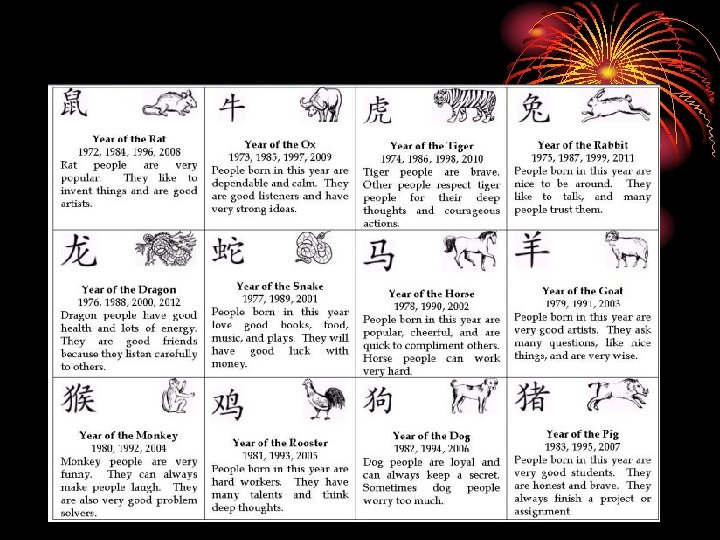 鼠
Year of the Rat
1972, 1984, 1996, 2008
Rat people are very
popular. They like to
invent things and are good
artists.
牛
Year of the Ox
1973, 1985, 1997, 2009
People born in this year are
dependable and calm. They
are good listeners and have
very strong ideas.
虎
Year of the Tiger
1974, 1986, 1998, 2010
Tiger people are brave.
Other people respect tiger
people for their deep
thoughts and courageous
actions.
兔
Year of the Rabbit
1975, 1987, 1999, 2011
People born in this year are
nice to be around. They
like to talk, and many
people trust them.
龙
Year of the Dragon
1976, 1988, 2000, 2012
Dragon people have good
health and lots of energy.
They are good friends
because they listen carefully
to others.
蛇
Year of the Snake
1977, 1989, 2001
People born in this year
love good books, food,
music, and plays. They will
have good luck with
money.
马
Year of the Horse
1978, 1990, 2002
People born in this year are
popular, cheerful, and are
quick to compliment others.
Horse people can work
very hard.
羊
Year of the Goat
1979, 1991, 2003
People born in this year are
very good artists. They ask
many questions, like nice
things, and are very wise.
猴
Year of the Monkey
1980, 1992, 2004
Monkey people are very
funny. They can always
make people laugh. They
are also very good problem
solvers.
鸡
Year of the Rooster
1981, 1993, 2005
People born in this year are
hard workers. They have
many talents and think
deep thoughts.
狗
Year of the Dog
1982, 1994, 2006
Dog people are loyal and
can always keep a secret.
Sometimes dog people
worry too much.
猪
Year of the Pig
1983, 1995, 2007
People born in this year are
very good students. They
are honest and brave. They
always finish a project or
assignment